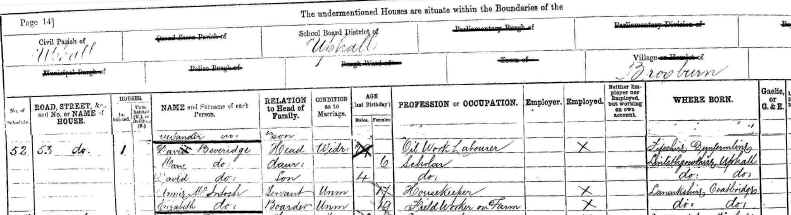 Page 14]
The undermentioned Houses are situate within the Boundaries of the
Civil Parish of
Quoad Sacra Parish of
School Board District of
Parliamentary Burgh of
Parliamentary Division of
Uphall
Uphall
Municipal Burgh of
Police Burgh of
Burgh Ward of
Town of
Village or Hamlet of
Broxburn
No. of Schedule.
ROAD, STREET, &c., and No. or NAME of HOUSE.
HOUSES.
Inhabited.
NAME and Surname of each Person.
RELATION to Head of Family.
CONDITION as to Marriage.
AGE [last Birthday]
Males.
Females.
PROFESSION or OCCUPATION.
Employer.
Employed.
Neither Employer nor Employed, but working on own account.
WHERE BORN.
Gaelic, or G. & E.
Alexander do. Son
52 53 do. 1 David Beveridge Head Widr Oil Work Labourer X Dunfermline
do. daur. 6 Scholar Linlithgowshire, Uphall
David do. Son 4 do. do. do.
Annie McIntosh Servant Unm 17 Housekeeper X Lanarkshire, Coatbridge
Elizabeth do. Boarder Unm 19 Field Worker on Farm X do. do.